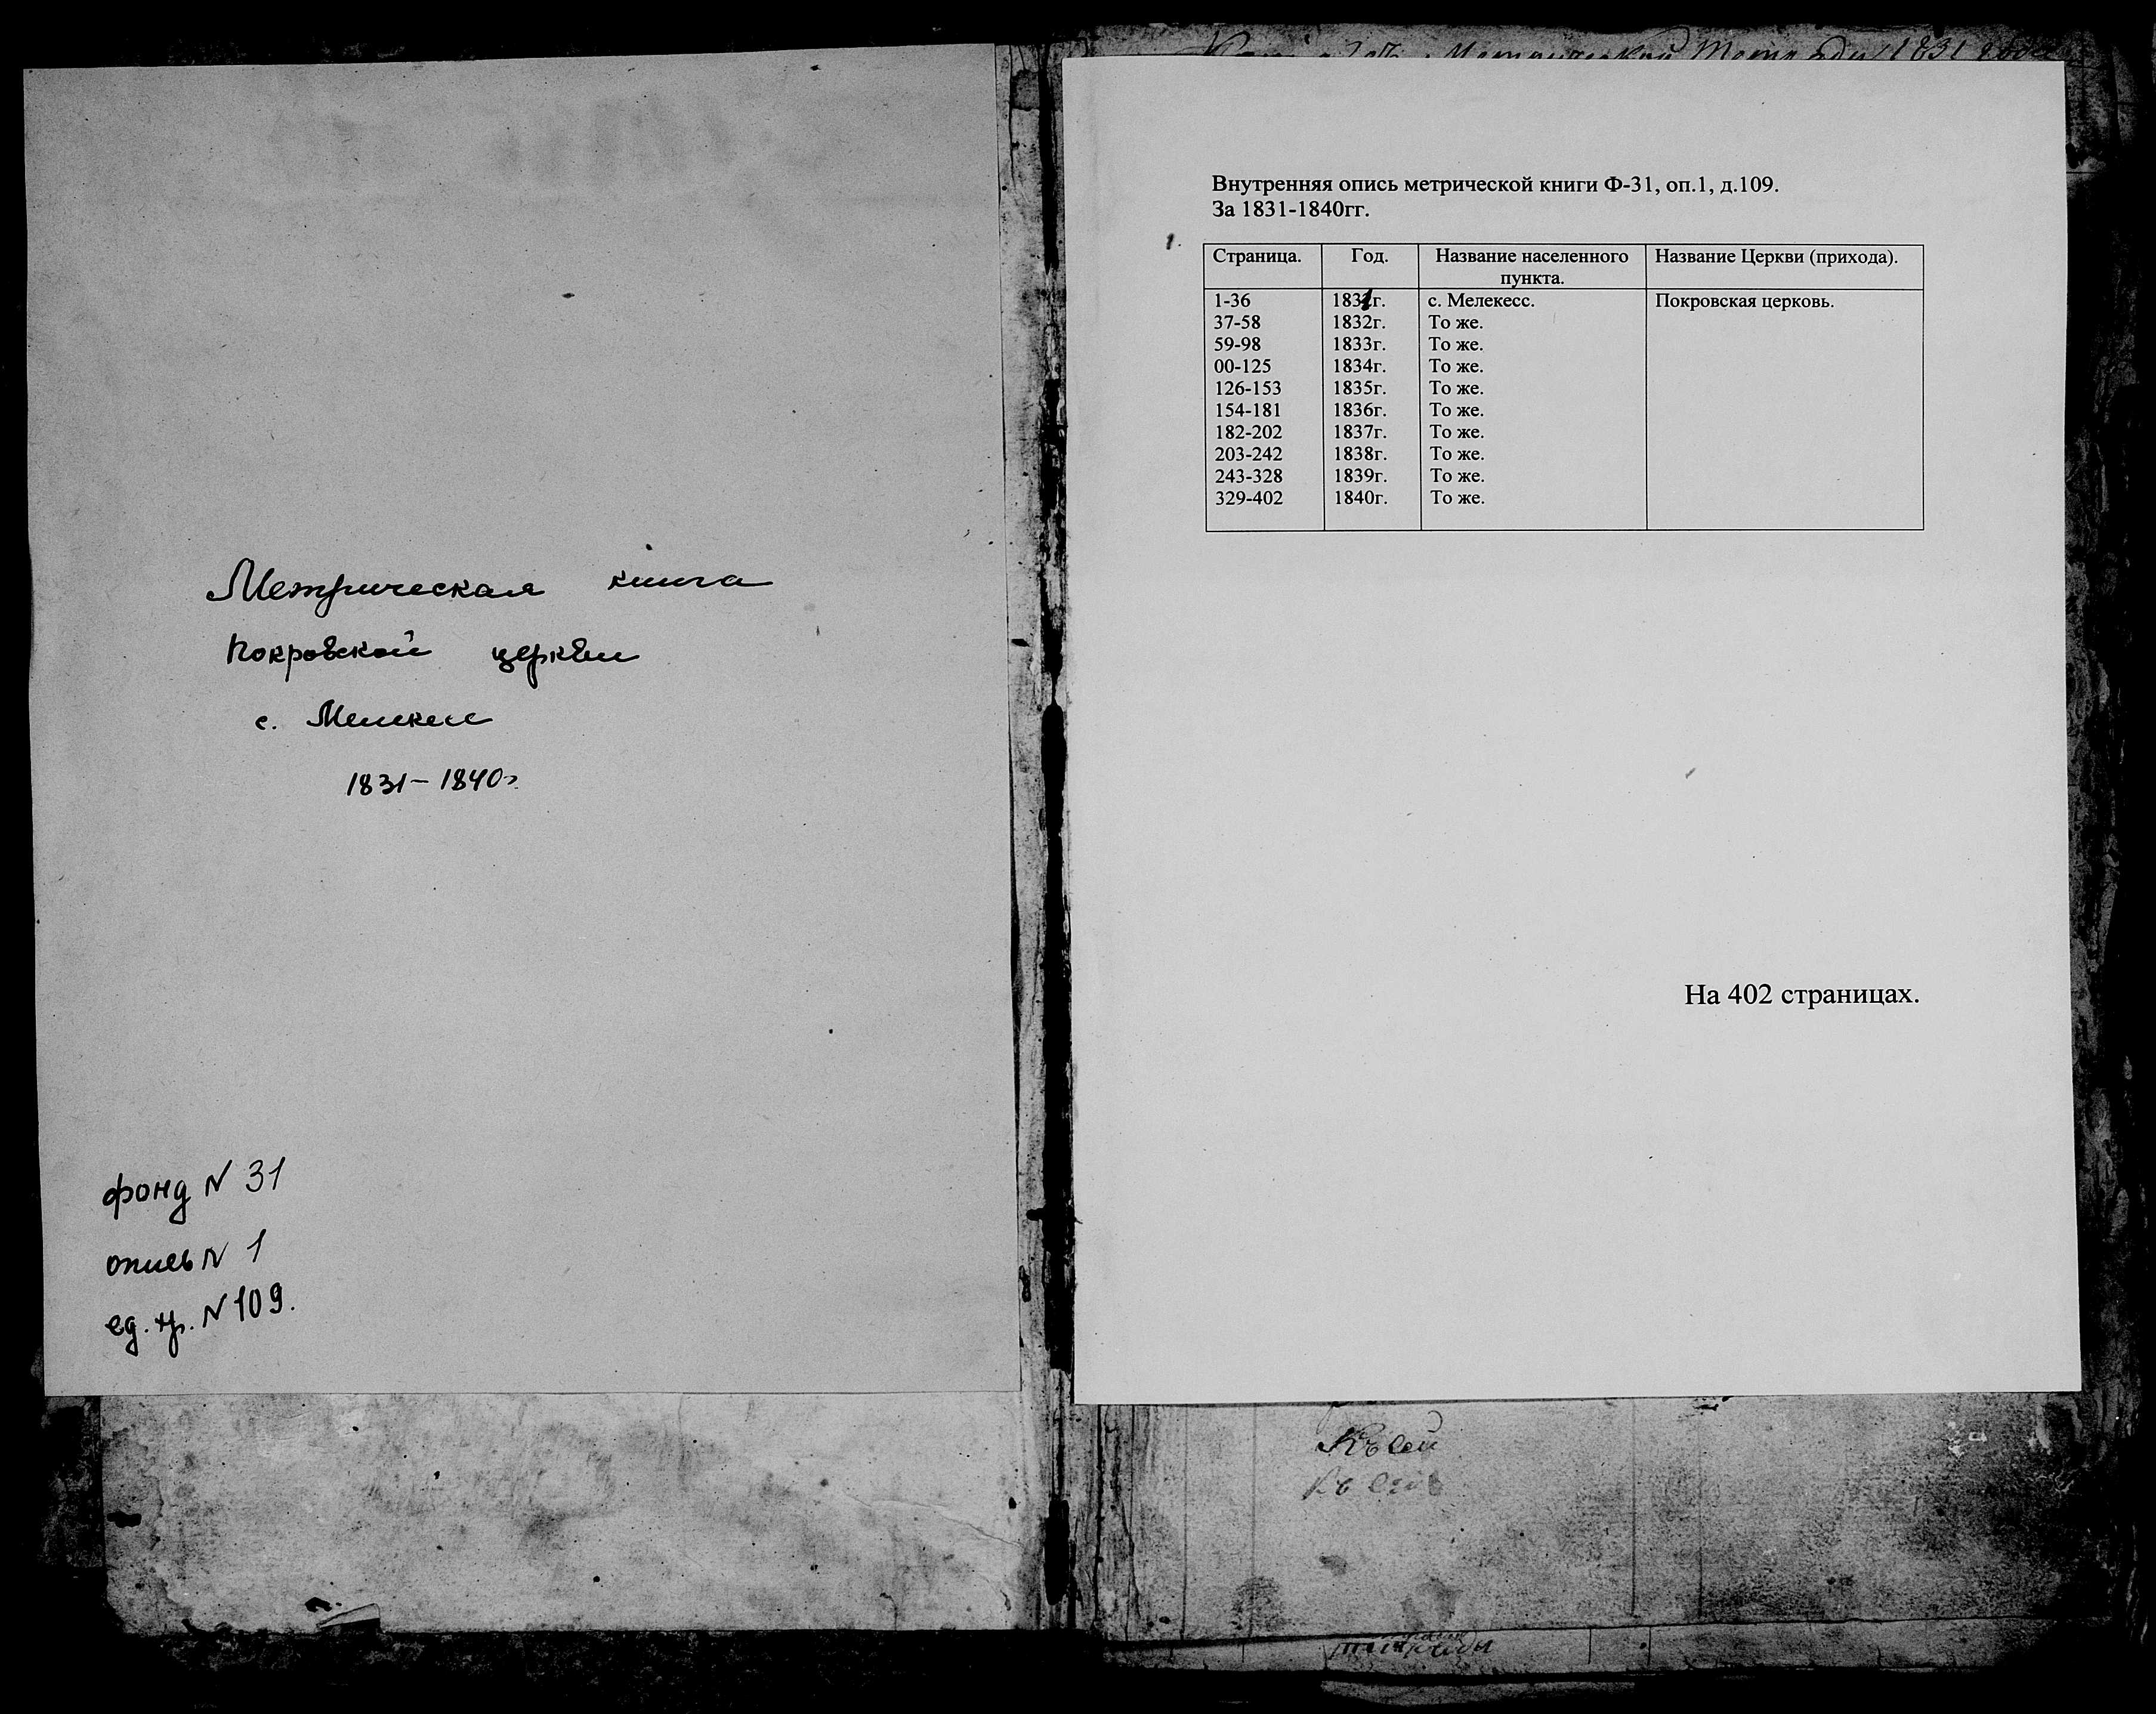 Метрическая книга
Покровской церкви
с. Мелекесс
1831-1840г.
фонд N 31
опись N 1
ед. хр. N 109.
Метрической Тетради 1831 года
Внутренняя опись метрической книги Ф-31, оп.1, д.109.
За 1831-1840гг.
1.
Страница. Год. Название населенного пункта. Название Церкви (прихода).
1-36 1831г. с. Мелекесс. Покровская церковь.
37-58 1832г. То же.
59-98 1833г. То же.
00-125 1834г. То же.
126-153 1835г. То же.
154-181 1836г. То же.
182-202 1837г. То же.
203-242 1838г. То же.
243-328 1839г. То же.
329-402 1840г. То же.
На 402 страницах.
Къ сей
Къ сей